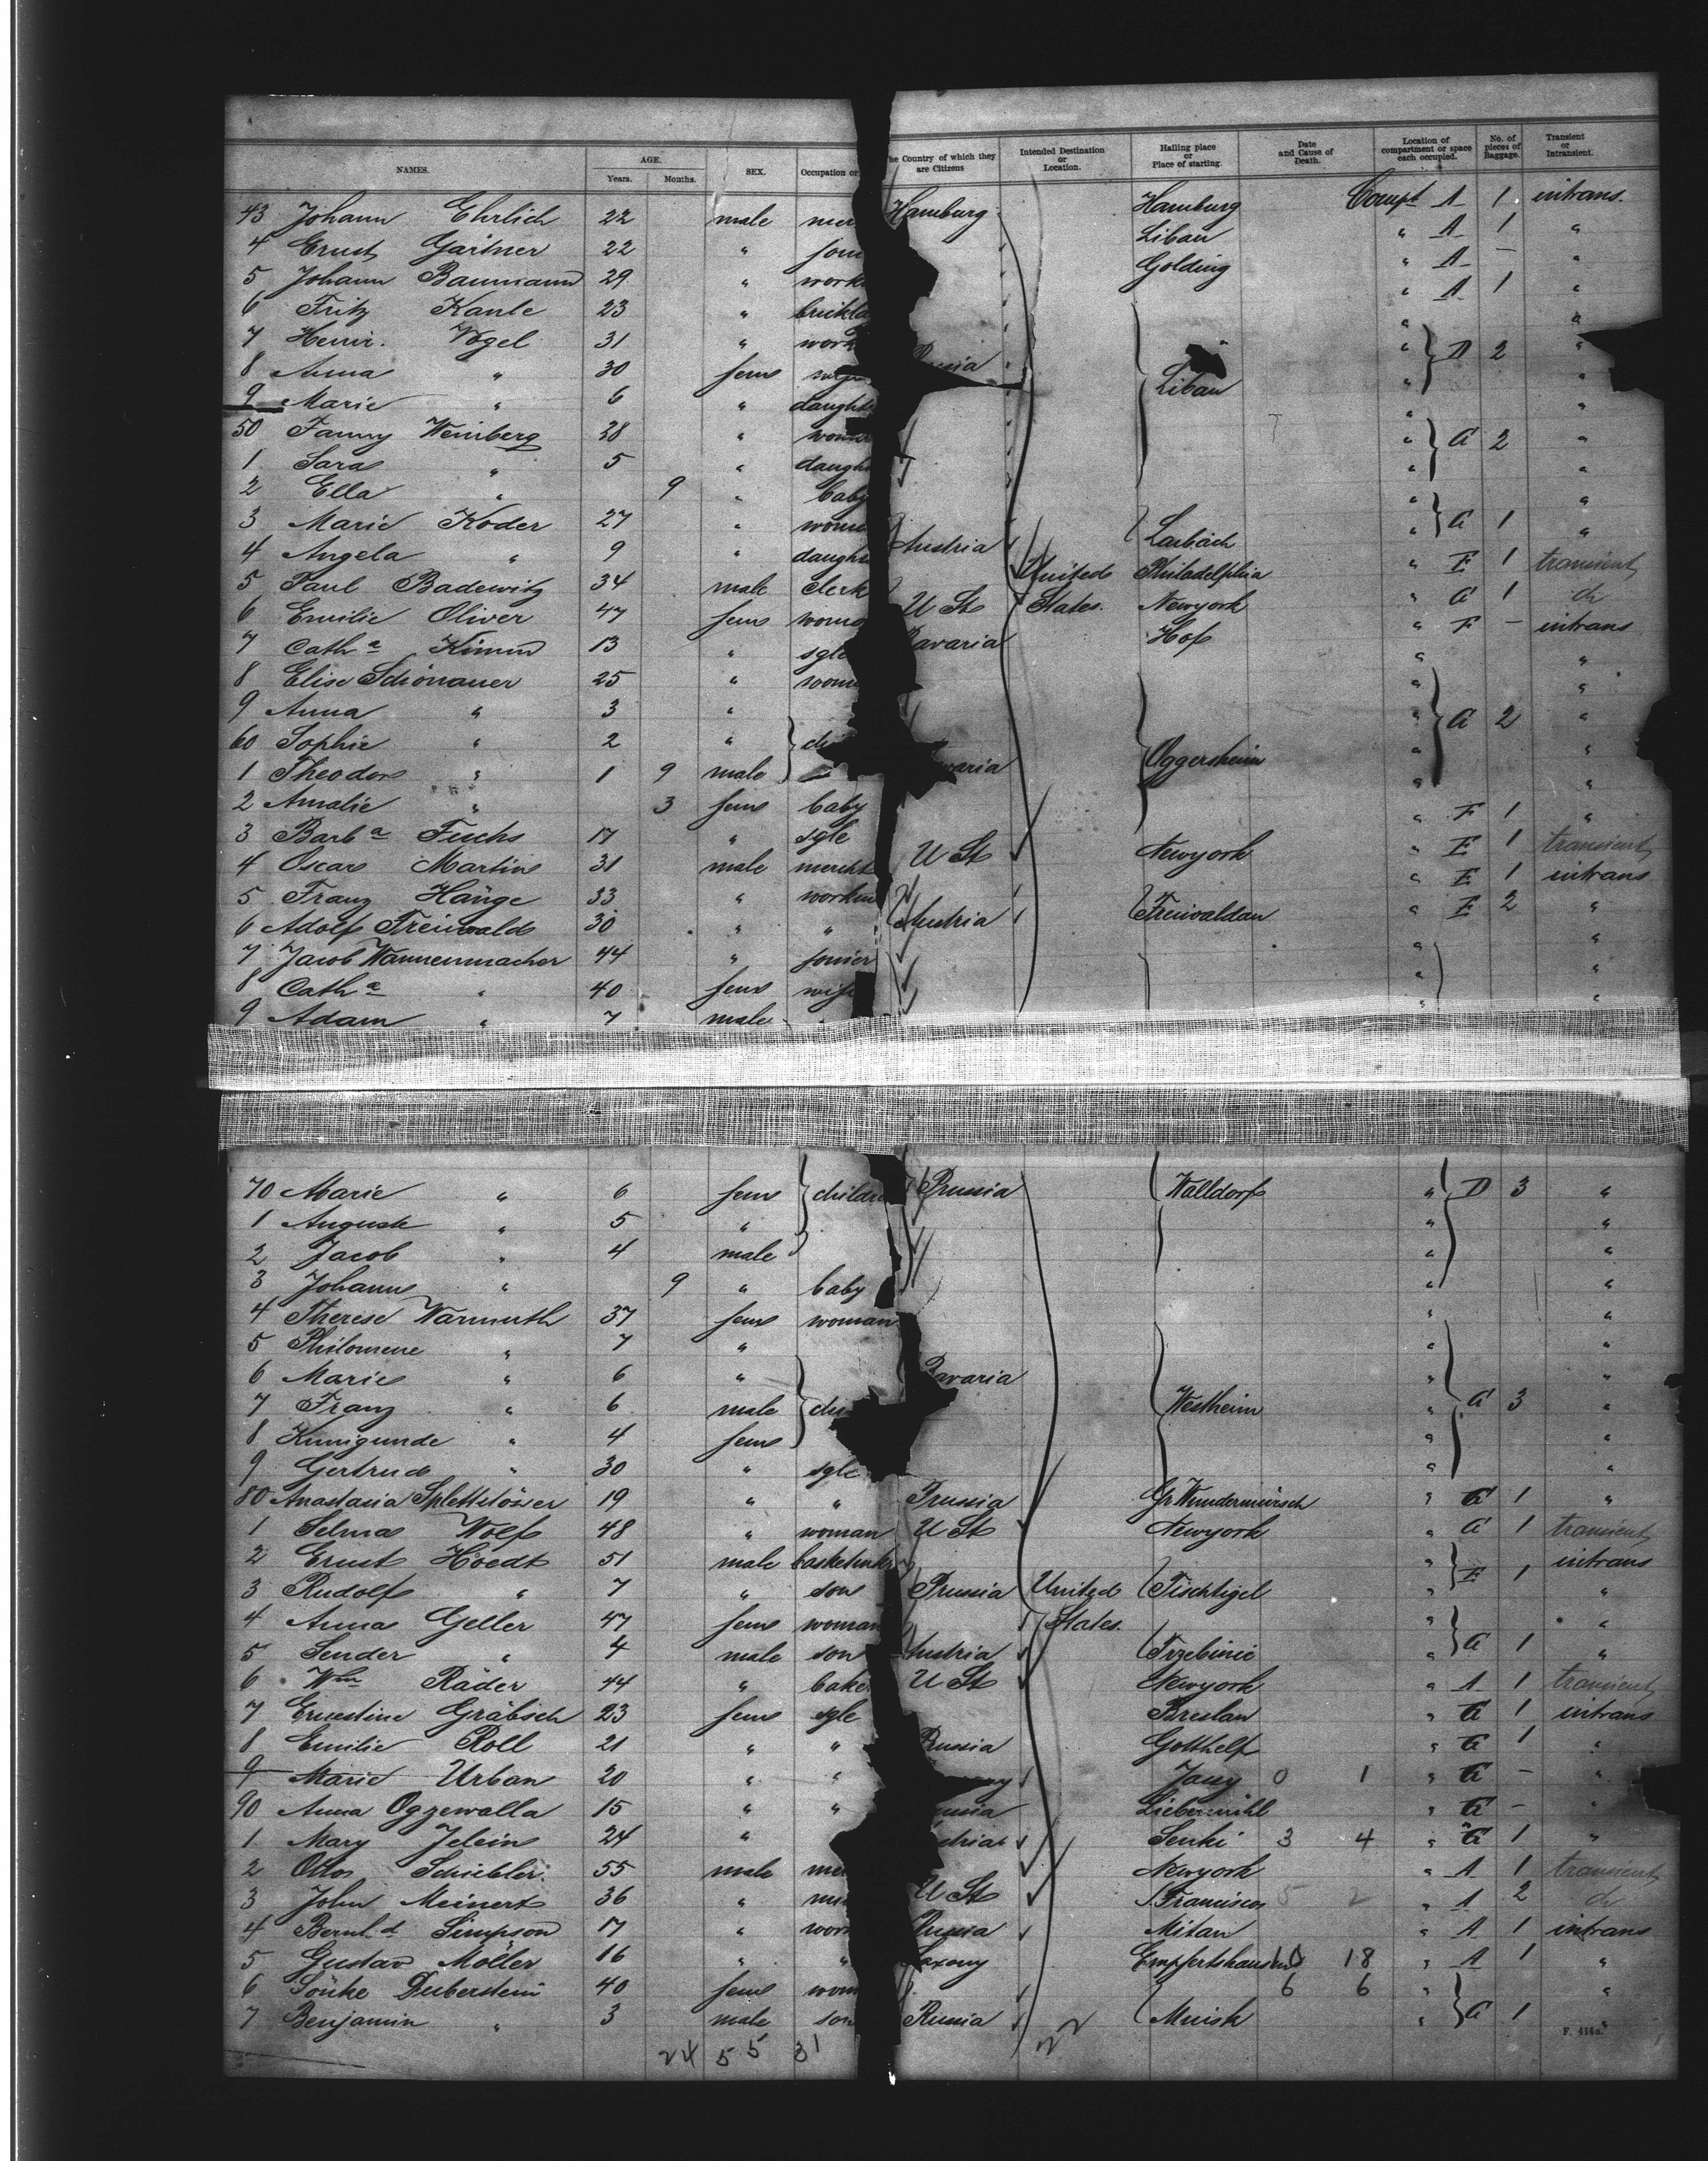 NAMES. AGE. Years. Months. SEX. Occupation or he Country of which they are Citizens Intended Destination or Location. Hailing place or Place of starting. Date and Cause of Death. Location of compartment or space each occupied. No. of pieces of Baggage. Transient or Intransient.
43 Johann Ehrlich 22 male mer Hamburg Hamburg Compt A 1 intrans.
4 Ernst Gärtner 22 " Libau " A 1 "
5 Johann Baumann 29 " work Golding " A — "
6 Fritz Kaule 23 " brickla " A 1 "
7 Heinr. Vogel 31 " work "
8 Anna " 30 fem ssia Libau " D 2 "
9 Marie " 6 " daught "
50 Fanny Weinberg 28 " woma "
1 Sara " 5 " daugh " G 2 "
2 Ella " 9 " baby "
3 Marie Koder 27 " woma "
4 Angela " 9 " daught Austria Laibach " G 1 "
5 Paul Badewitz 34 male clerk United Philadelphia " E 1 transient
6 Emilie Oliver 47 fem woma U St States. Newyork " G 1 do
7 Catha Kimm 13 " sgle Bavaria Hof " F — intrans
8 Elise Schönauer 25 " woma "
9 Anna " 3 " "
60 Sophie " 2 " chi " G 2 "
1 Theodor " 1 9 male varia Oggersheim "
2 Amalie " 3 fem baby "
3 Barba Fuchs 17 " sgle " F 1 "
4 Oscar Martin 31 male mercht U St Newyork " E 1 transient
5 Franz Hänge 33 " workm " E 1 intrans
6 Adolf Freiwald 30 " " Austria Freiwaldau " E 2 "
7 Jacob Wannenmacher 44 " "
8 Catha " 40 fem wife "
9 Adam " 7 male "
70 Marie " 6 fem childre Prussia Walldorf " D 3 "
1 Auguste " 5 " " "
2 Jacob " 4 male " "
3 Johann " 9 " baby " "
4 Therese Warmuth 37 fem woman " "
5 Philomene " 7 " " "
6 Marie " 6 " Bavaria " "
7 Franz " 6 male chi Westheim " G 3 "
8 Kunigunde " 4 fem " "
9 Gertrud " 30 " sgle " "
80 Anastasia Splettstösser 19 " " Prussia " G 1 "
1 Selma Wolf 48 " woman U St Newyork " G 1 transient
2 Ernst Hoedt 51 male basketmkr " intrans
3 Rudolf " 7 " son Prussia United Tischtigel " E 1 "
4 Anna Geller 47 fem woman States. " "
5 Sender " 4 male son Austria Trzebinie " G 1 "
6 Wm Räder 44 " bake U St Newyork " A 1 transient
7 Ernestine Gräbsch 23 fem sgle Breslau " G 1 intrans
8 Emilie Roll 21 " " Russia Gotthelf " G 1 "
9 Marie Urban 20 " " 0 1 " G — "
90 Anna Ogzewalla 15 " " ussia Liebemühl " G — "
1 Mary Jelein 24 " Senki 3 4 " G 1 "
2 Otto Schiebler 55 male me Newyork " A 1 transient
3 John Meinert 36 " U St S. Francisco 5 2 " A 2 do
4 Bernhd Simpson 17 " work Russia Mitau " A 1 intrans
5 Gustav Möller 16 " " Saxony Empfertshausen 10 18 " A 1 "
6 Sönke Deberstein 40 fem wom 6 6 " "
7 Benjamin " 3 male son Russia Minsk " G 1
24 55 31 22
F. 414a.